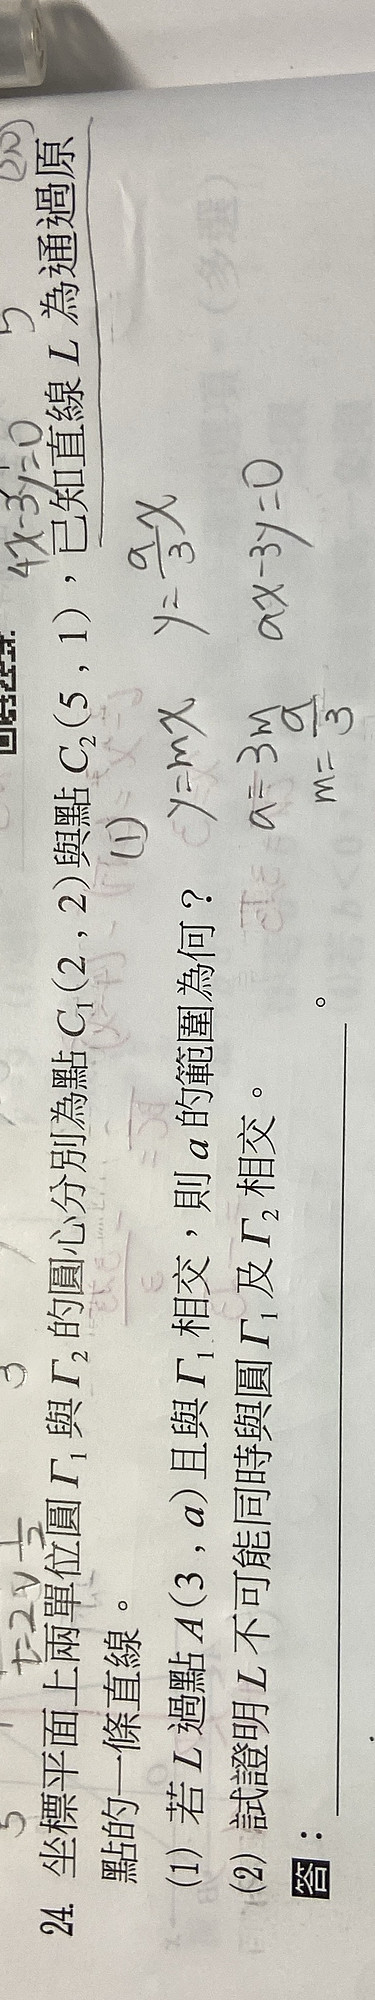 4x-3y=0
24. 坐標平面上兩單位圓 Γ₁ 與 Γ₂ 的圓心分別為點 C₁(2 , 2)與點 C₂(5 , 1)，已知直線 L 為通過原
點的一條直線。
(1)
(1) 若 L 過點 A(3 , a)且與 Γ₁ 相交，則 a 的範圍為何？
y=mx y=a/3x
(2) 試證明 L 不可能同時與圓 Γ₁ 及 Γ₂ 相交。
a=3m ax-3y=0
m=a/3
答：。